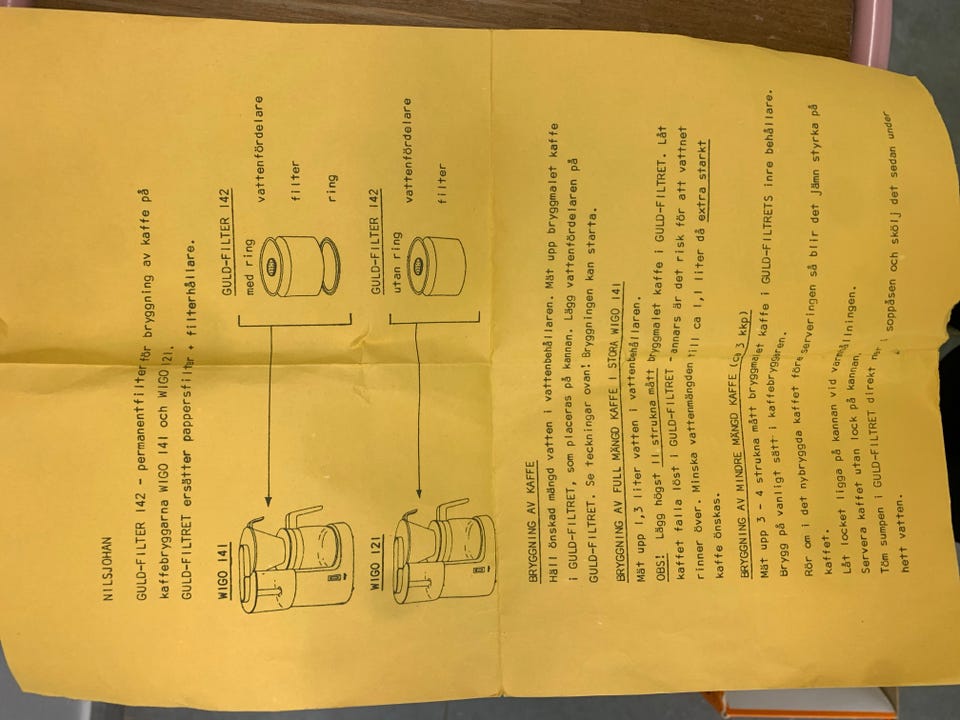 NILSJOHAN
GULD-FILTER 142 - permanentfilter för bryggning av kaffe på
kaffebryggarna WIGO 141 och WIGO 121.
GULD-FILTRET ersätter pappersfilter + filterhållare.
WIGO 141
GULD-FILTER 142
med ring
vattenfördelare
filter
ring
WIGO 121
GULD-FILTER 142
utan ring
vattenfördelare
filter
BRYGGNING AV KAFFE
Häll önskad mängd vatten i vattenbehållaren. Mät upp bryggmalet kaffe
i GULD-FILTRET, som placeras på kannan. Lägg vattenfördelaren på
GULD-FILTRET. Se teckningar ovan! Bryggningen kan starta.
BRYGGNING AV FULL MÄNGD KAFFE I STORA WIGO 141
Mät upp 1,3 liter vatten i vattenbehållaren.
OBS! Lägg högst 11 strukna mått bryggmalet kaffe i GULD-FILTRET. Låt
kaffet falla löst i GULD-FILTRET - annars är det risk för att vattnet
rinner över. Minska vattenmängden till ca 1,1 liter då extra starkt
kaffe önskas.
BRYGGNING AV MINDRE MÄNGD KAFFE (ca 3 kkp)
Mät upp 3 - 4 strukna mått bryggmalet kaffe i GULD-FILTRETS inre behållare.
Brygg på vanligt sätt i kaffebryggaren.
Rör om i det nybryggda kaffet före serveringen så blir det jämn styrka på
kaffet.
Låt locket ligga på kannan vid varmhållningen.
Servera kaffet utan lock på kannan.
Töm sumpen i GULD-FILTRET direkt i soppåsen och skölj det sedan under
hett vatten.